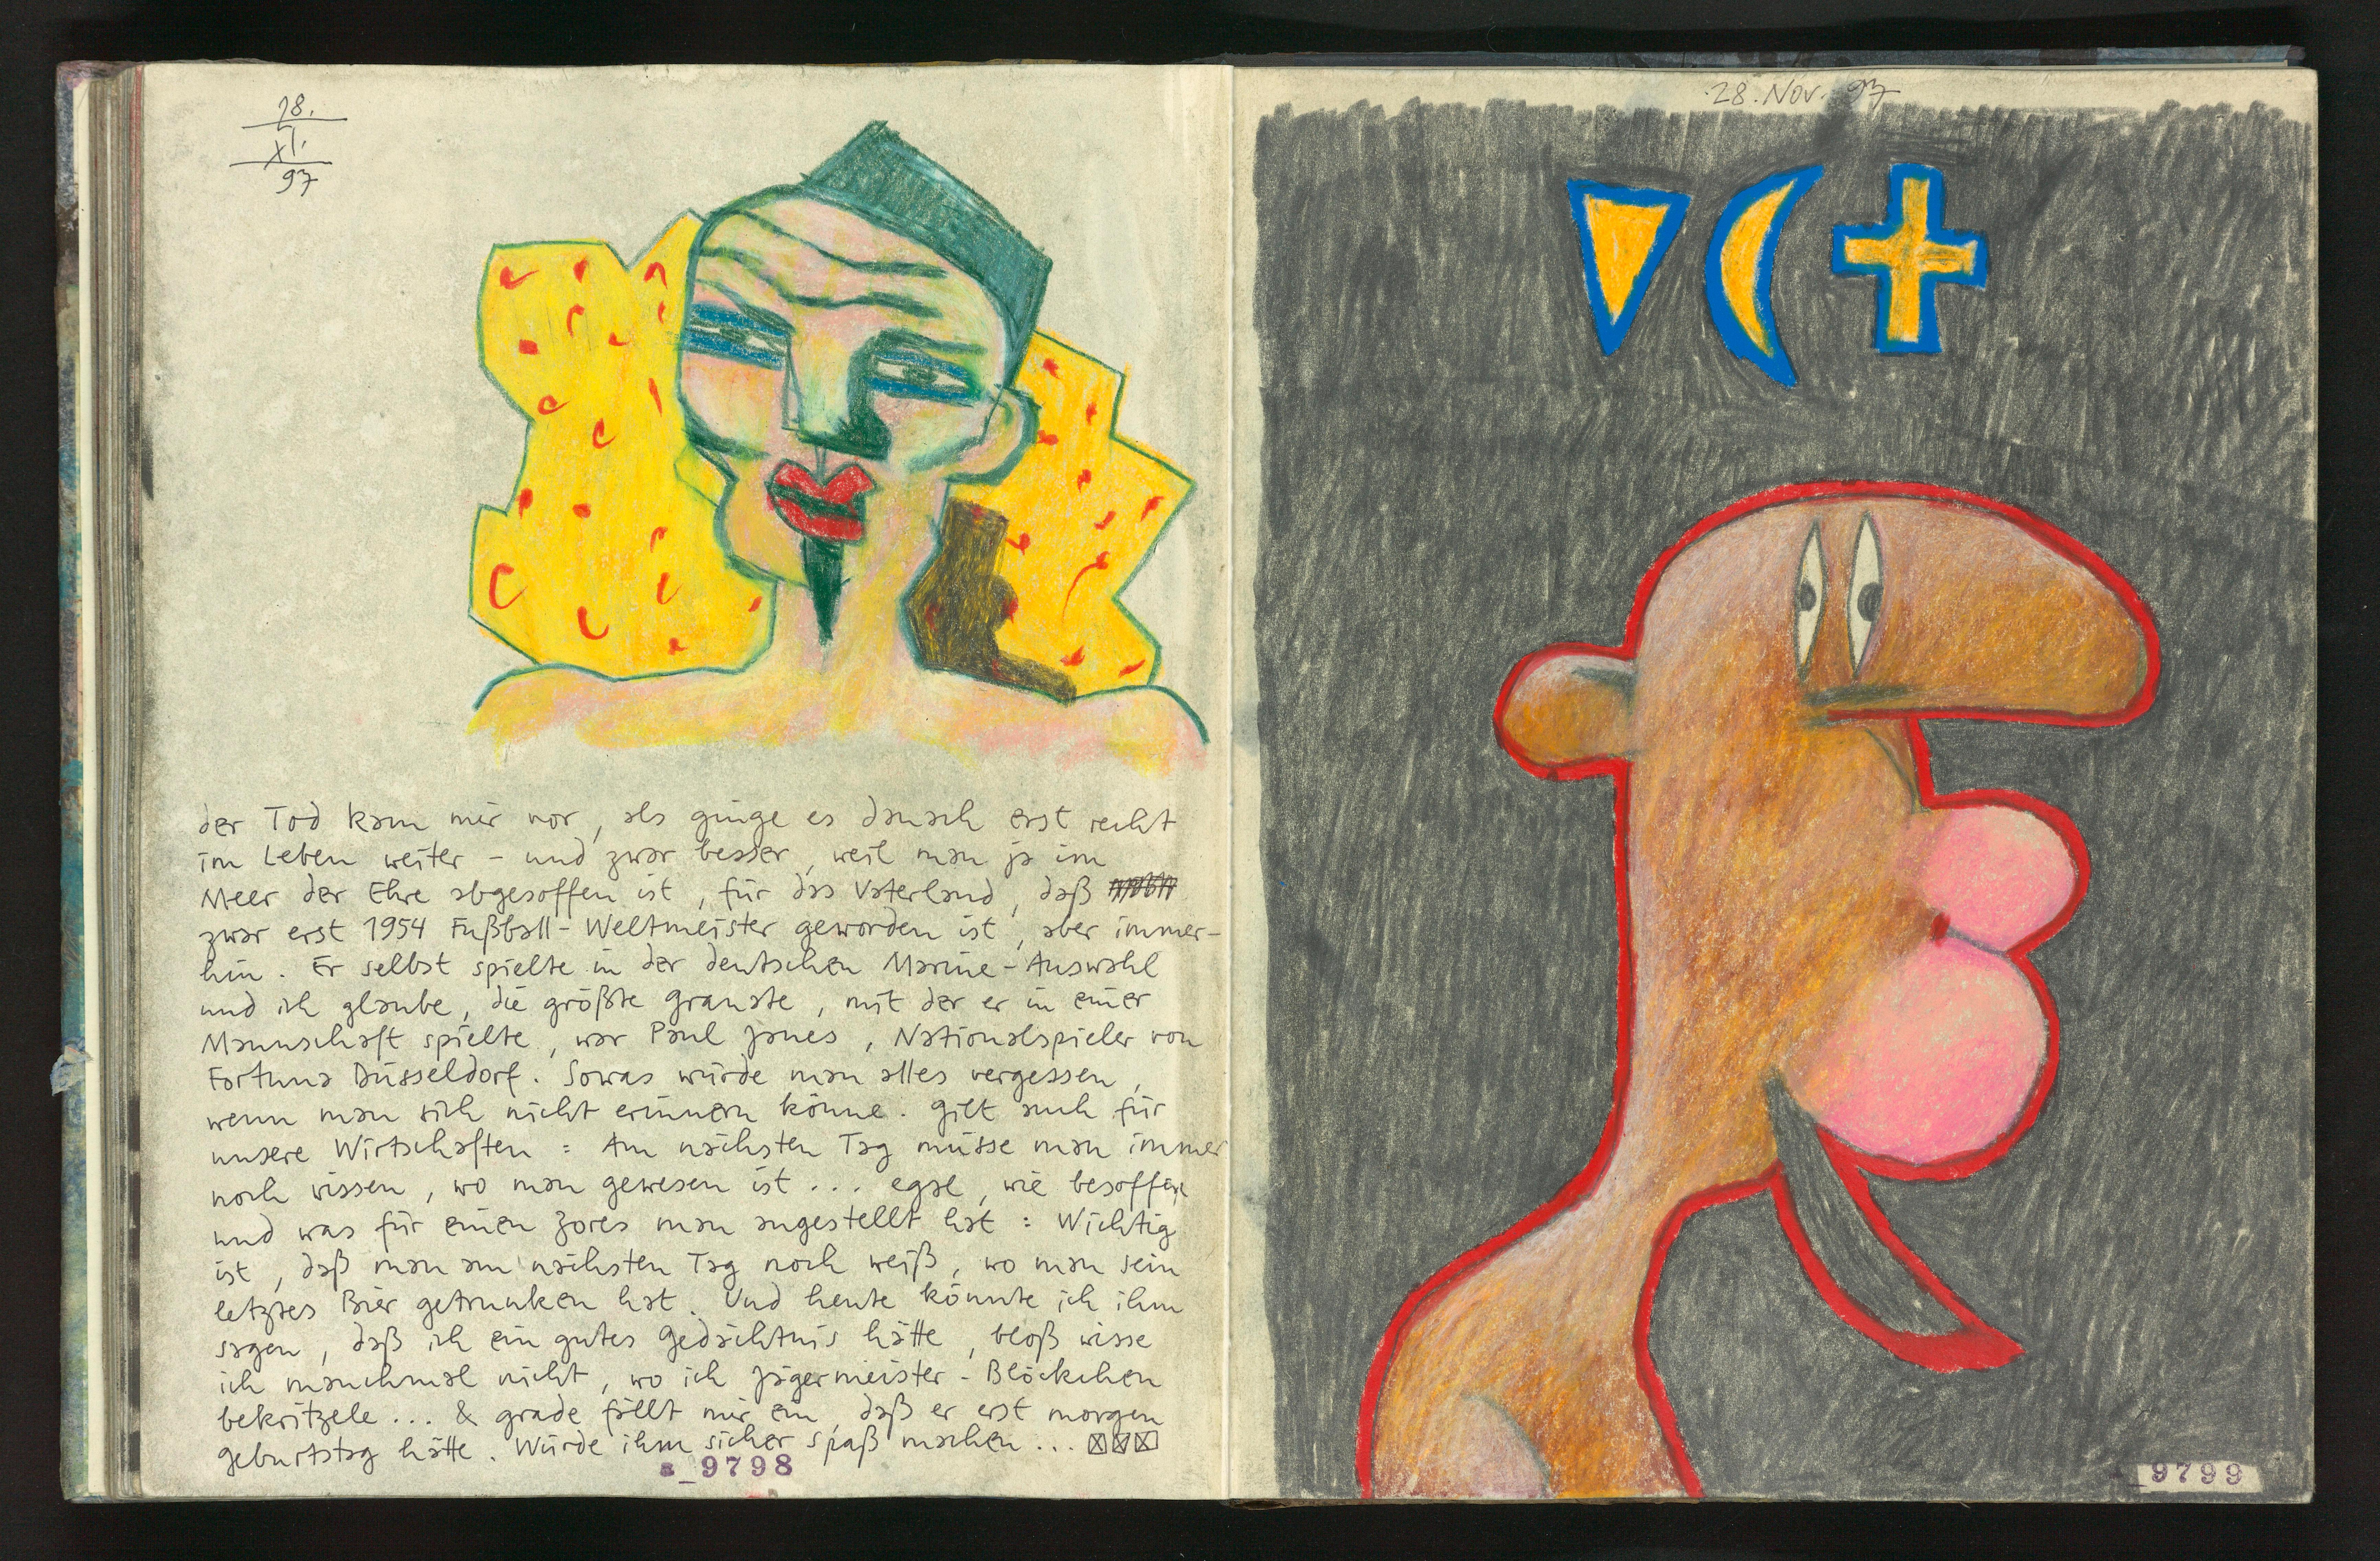 28.
XI.
97
der Tod kam mir vor, als ginge es danach erst recht
im Leben weiter - und zwar besser, weil man ja im
Meer der Ehre abgesoffen ist, für das Vaterland, daß
zwar erst 1954 Fußball-Weltmeister geworden ist, aber immer-
hin. Er selbst spielte in der deutschen Marine-Auswahl
und ich glaube, die größte Granate, mit der er in einer
Mannschaft spielte, war Paul Janes, Nationalspieler von
Fortuna Düsseldorf. Sowas würde man alles vergessen,
wenn man sich nicht erinnern könne. Gilt auch für
unsere Wirtschaften: Am nächsten Tag müsse man immer
noch wissen, wo man gewesen ist... egal, wie besoffen
und was für einen Zores man angestellt hat: Wichtig
ist, daß man am nächsten Tag noch weiß, wo man sein
letztes Bier getrunken hat. Und heute könnte ich ihm
sagen, daß ich ein gutes Gedächtnis hätte, bloß wisse
ich manchmal nicht, wo ich Jägermeister-Blöckchen
bekritzele... & grade fällt mir ein, daß er erst morgen
Geburtstag hätte. Würde ihm sicher Spaß machen...
9798
28. Nov. 97
9799